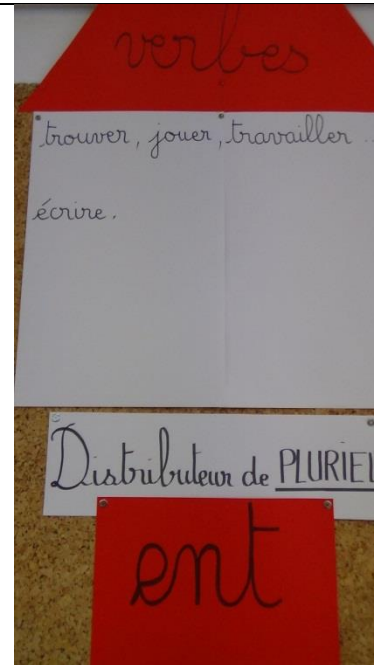 verbes
trouver, jouer, travailler ..
écrire.
Distributeur de PLURIEL
ent